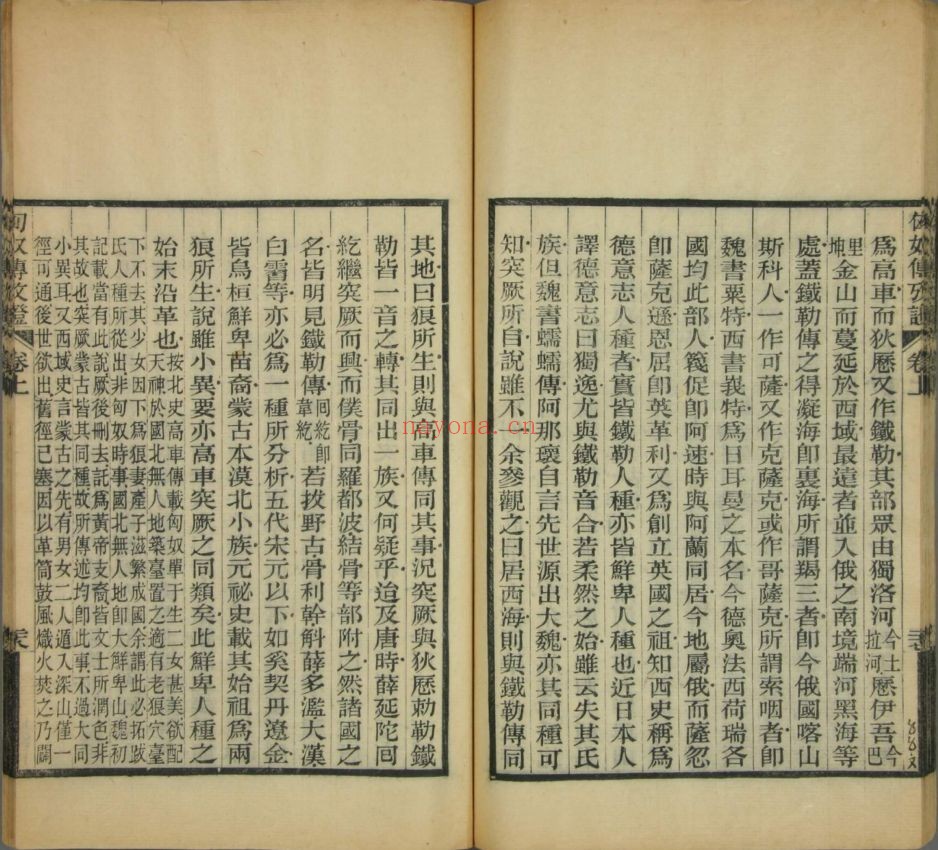 爲高車而狄歷又作鐵勒其部眾由獨洛河今土拉河歷伊吾今巴
里坤金山而蔓延於西域最遠者並入俄之南境端河黑海等
處蓋鐵勒傳之得凝海卽裏海所謂羯三者卽今俄國喀山
斯科人一作可薩又作克薩克或作哥薩克所謂索咽者卽
魏書粟特西書義特爲日耳曼之本名今德奧法西荷瑞各
國均此部人篾促卽阿速時與阿蘭同居今地屬俄而薩忽
卽薩克遜恩屈卽英革利又爲創立英國之祖知西史稱爲
德意志人種者實皆鐵勒人種亦皆鮮卑人種也近日本人
譯德意志曰獨逸尤與鐵勒音合若柔然之始雖云失其氏
族但魏書蠕蠕傳阿那瓌自言先世源出大魏亦其同種可
知突厥所自說雖不一余參觀之曰居西海則與鐵勒傳同
卷上
其地曰痕所生則與高車傳同其事況突厥與狄歷勅勒鐵
勒皆一音之轉其同出一族又何疑乎迨及唐時薛延陀囘
紇繼突厥而興而僕骨同羅都波結骨等部附之然諸國之
名皆明見鐵勒傳囘紇卽韋紇若拔野古骨利幹斛薛多濫大漢
白霫等亦必爲一種所分析五代宋元以下如奚契丹遼金
皆烏桓鮮卑苗裔蒙古本漠北小族元祕史載其始祖爲兩
狼所生說雖小異要亦高車突厥之同類矣此鮮卑人種之
始末沿革也按北史高車傳載匈奴單于生二女甚美欲配天神於國北無人地築臺置之適有老狼穴臺
下不去其少女因下爲狼妻產子滋繁成國余謂此必拓跋氏人種所從出非匈奴時事國北無人地卽大鮮卑山魏初
記載當有此說厥後刪去託爲黃帝支裔皆文士所潤色非其故也突厥蒙古皆其同種故所傳述均卽此事不過大同
小異耳又西域史言蒙古之先有男女二人遁入深山僅一徑可通後世欲出舊徑已塞因以革筒鼓風熾火焚之乃闢
匈奴傳攷證
卷上
navona.cn